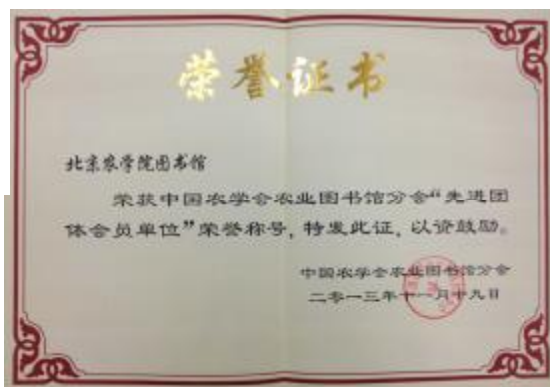 荣誉证书
北京农学院图书馆
荣获中国农学会农业图书馆分会“先进团
体会员单位”荣誉称号，特发此证，以资鼓励。
中国农学会农业图书馆分会
二零一三年十一月十九日